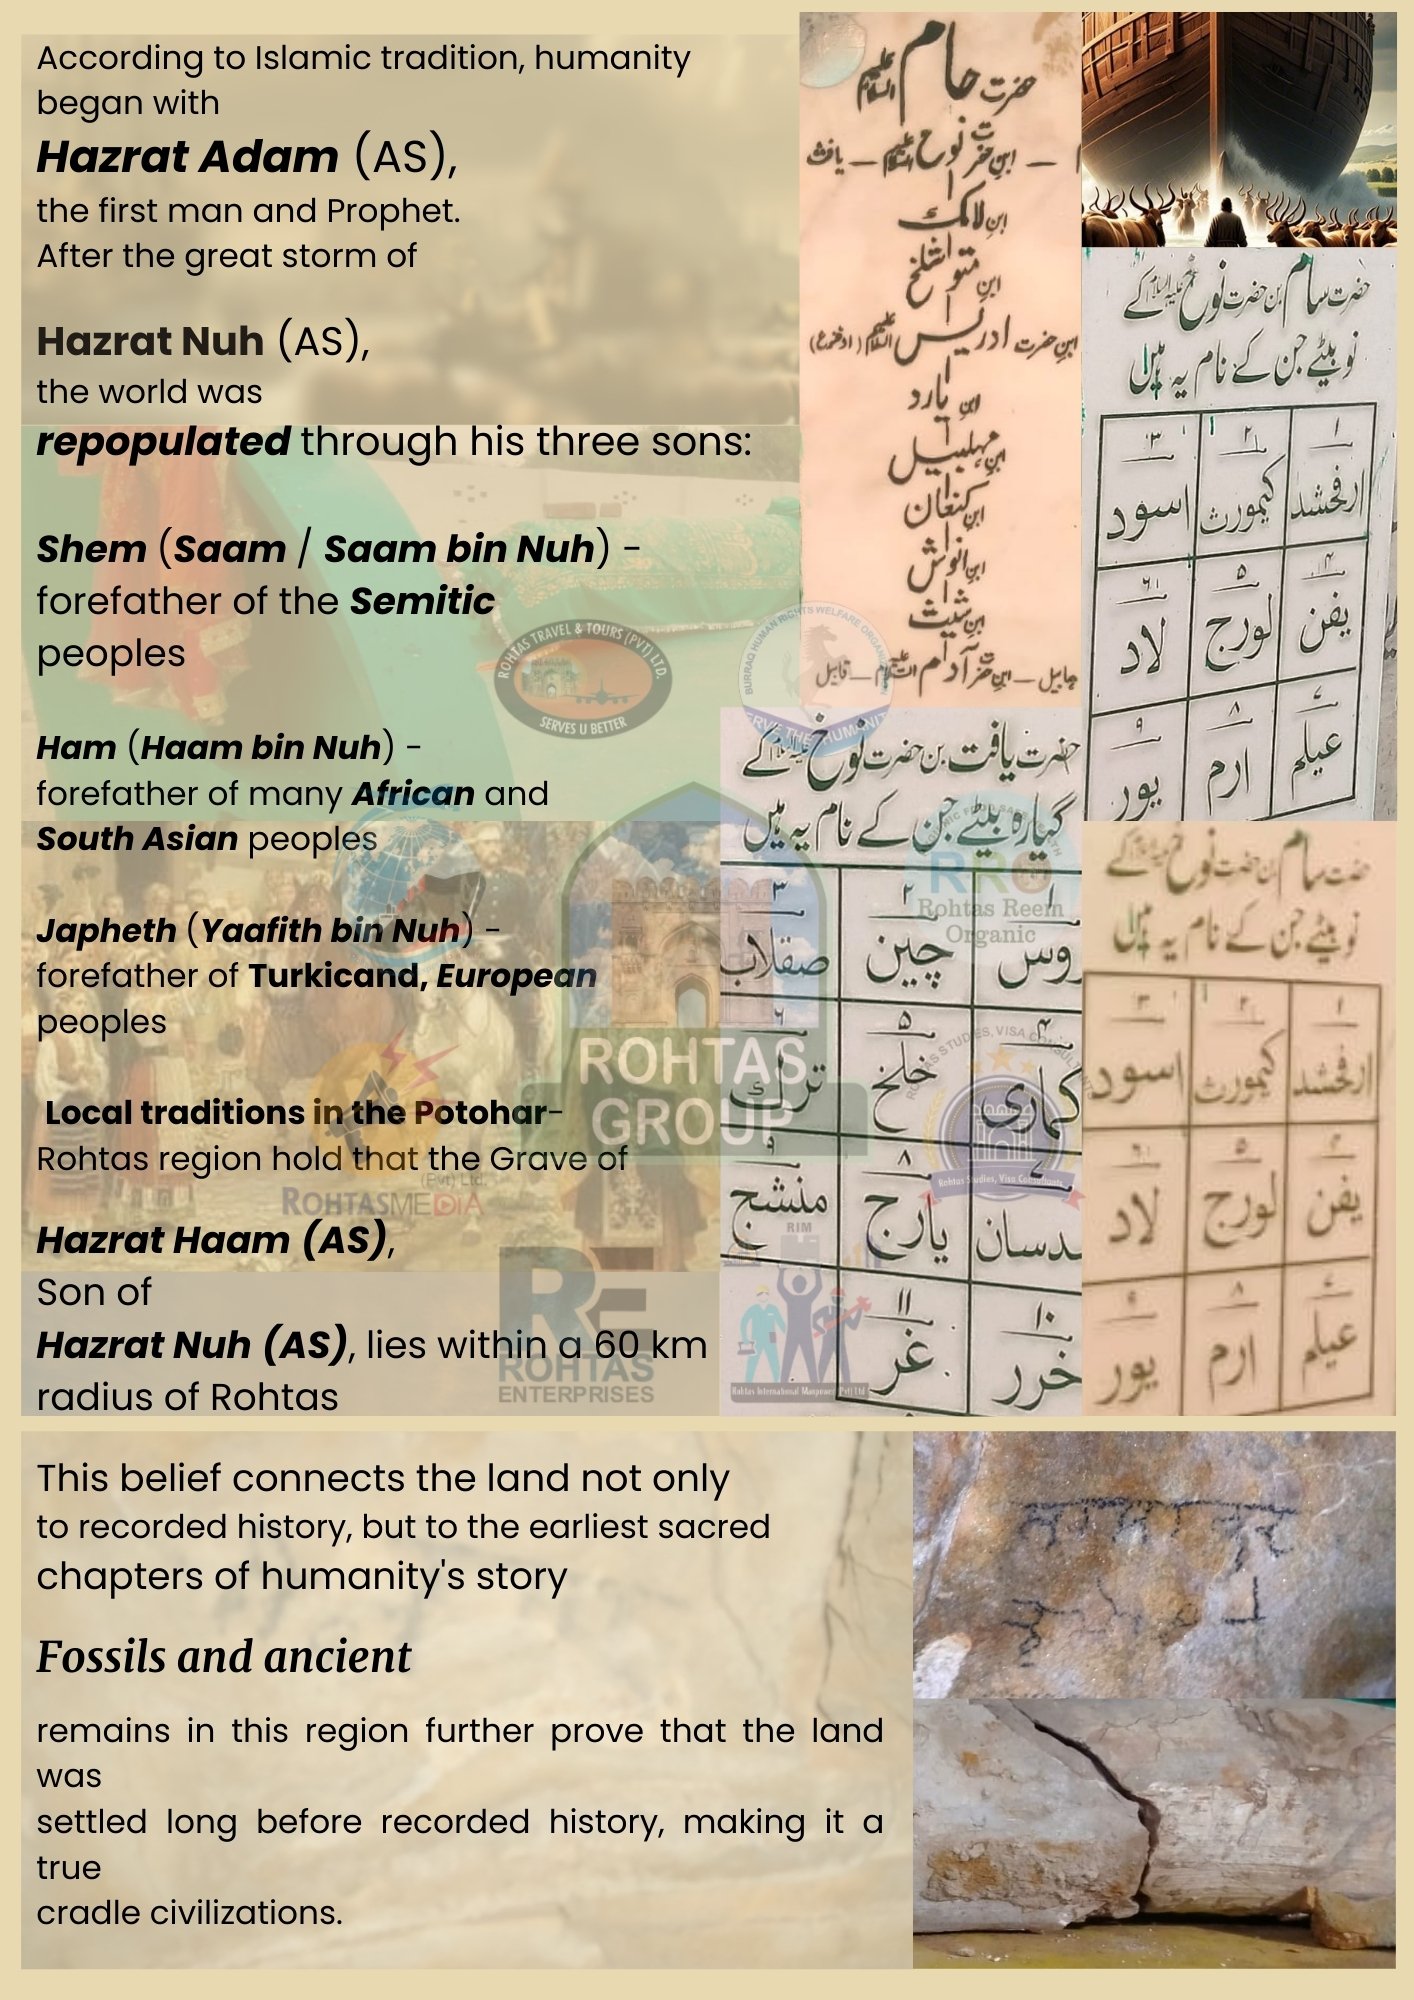 According to Islamic tradition, humanity
began with
Hazrat Adam (AS),
the first man and Prophet.
After the great storm of
Hazrat Nuh (AS),
the world was
repopulated through his three sons:
Shem (Saam / Saam bin Nuh) –
forefather of the Semitic
peoples
Ham (Haam bin Nuh) –
forefather of many African and
South Asian peoples
Japheth (Yaafith bin Nuh) –
forefather of Turkicand, European
peoples
Local traditions in the Potohar–
Rohtas region hold that the Grave of
Hazrat Haam (AS),
Son of
Hazrat Nuh (AS), lies within a 60 km
radius of Rohtas
حضرت حام علیہ السلام
ابن حضرت نوح علیہ السلام — یافث
ابن لامک
ابن متوشلخ
ابن حضرت ادریس علیہ السلام (اخنوخ)
ابن یارد
ابن مہلبیل
ابن کنعان
ابن انوش
ابن شیث
ہابیل — ابن حضرت آدم علیہ السلام — قابیل
حضرت سام بن حضرت نوح علیہ السلام کے
نو بیٹے جن کے نام یہ ہیں
۱ ۲ ۳
ارفخشد کیمورث اسود
۴ ۵ ۶
یفن لورج لاد
۷ ۸ ۹
عیلم ارم یور
حضرت یافت بن حضرت نوح علیہ السلام کے
گیارہ بیٹے جن کے نام یہ ہیں
۱ ۲ ۳
روس چین صقلاب
۴ ۵ ۶
کماری خلخ ترک
۷ ۸ ۹
سدسان یارج منشج
۱۰ ۱۱
خرر غز
حضرت سام بن حضرت نوح علیہ السلام کے
نو بیٹے جن کے نام یہ ہیں
۱ ۲ ۳
ارفخشد کیمورث اسود
۴ ۵ ۶
یفن لورج لاد
۷ ۸ ۹
عیلم ارم یور
ROHTAS TRAVEL & TOURS (PVT) LTD.
SERVES U BETTER
BURRAQ HUMAN RIGHTS WELFARE ORGAN
SERVE THE HUMANITY
RRO
Rohtas Reem
Organic
ROHTAS
GROUP
ROHTAS STUDIES, VISA CONSULTANT
Rohtas Studies, Visa Consultants
(Pvt) Ltd.
ROHTASMEDIA
RE
ROHTAS
ENTERPRISES
RIM
Rohtas International Manpower (Pvt) Ltd
This belief connects the land not only
to recorded history, but to the earliest sacred
chapters of humanity's story
Fossils and ancient
remains in this region further prove that the land
was
settled long before recorded history, making it a
true
cradle civilizations.